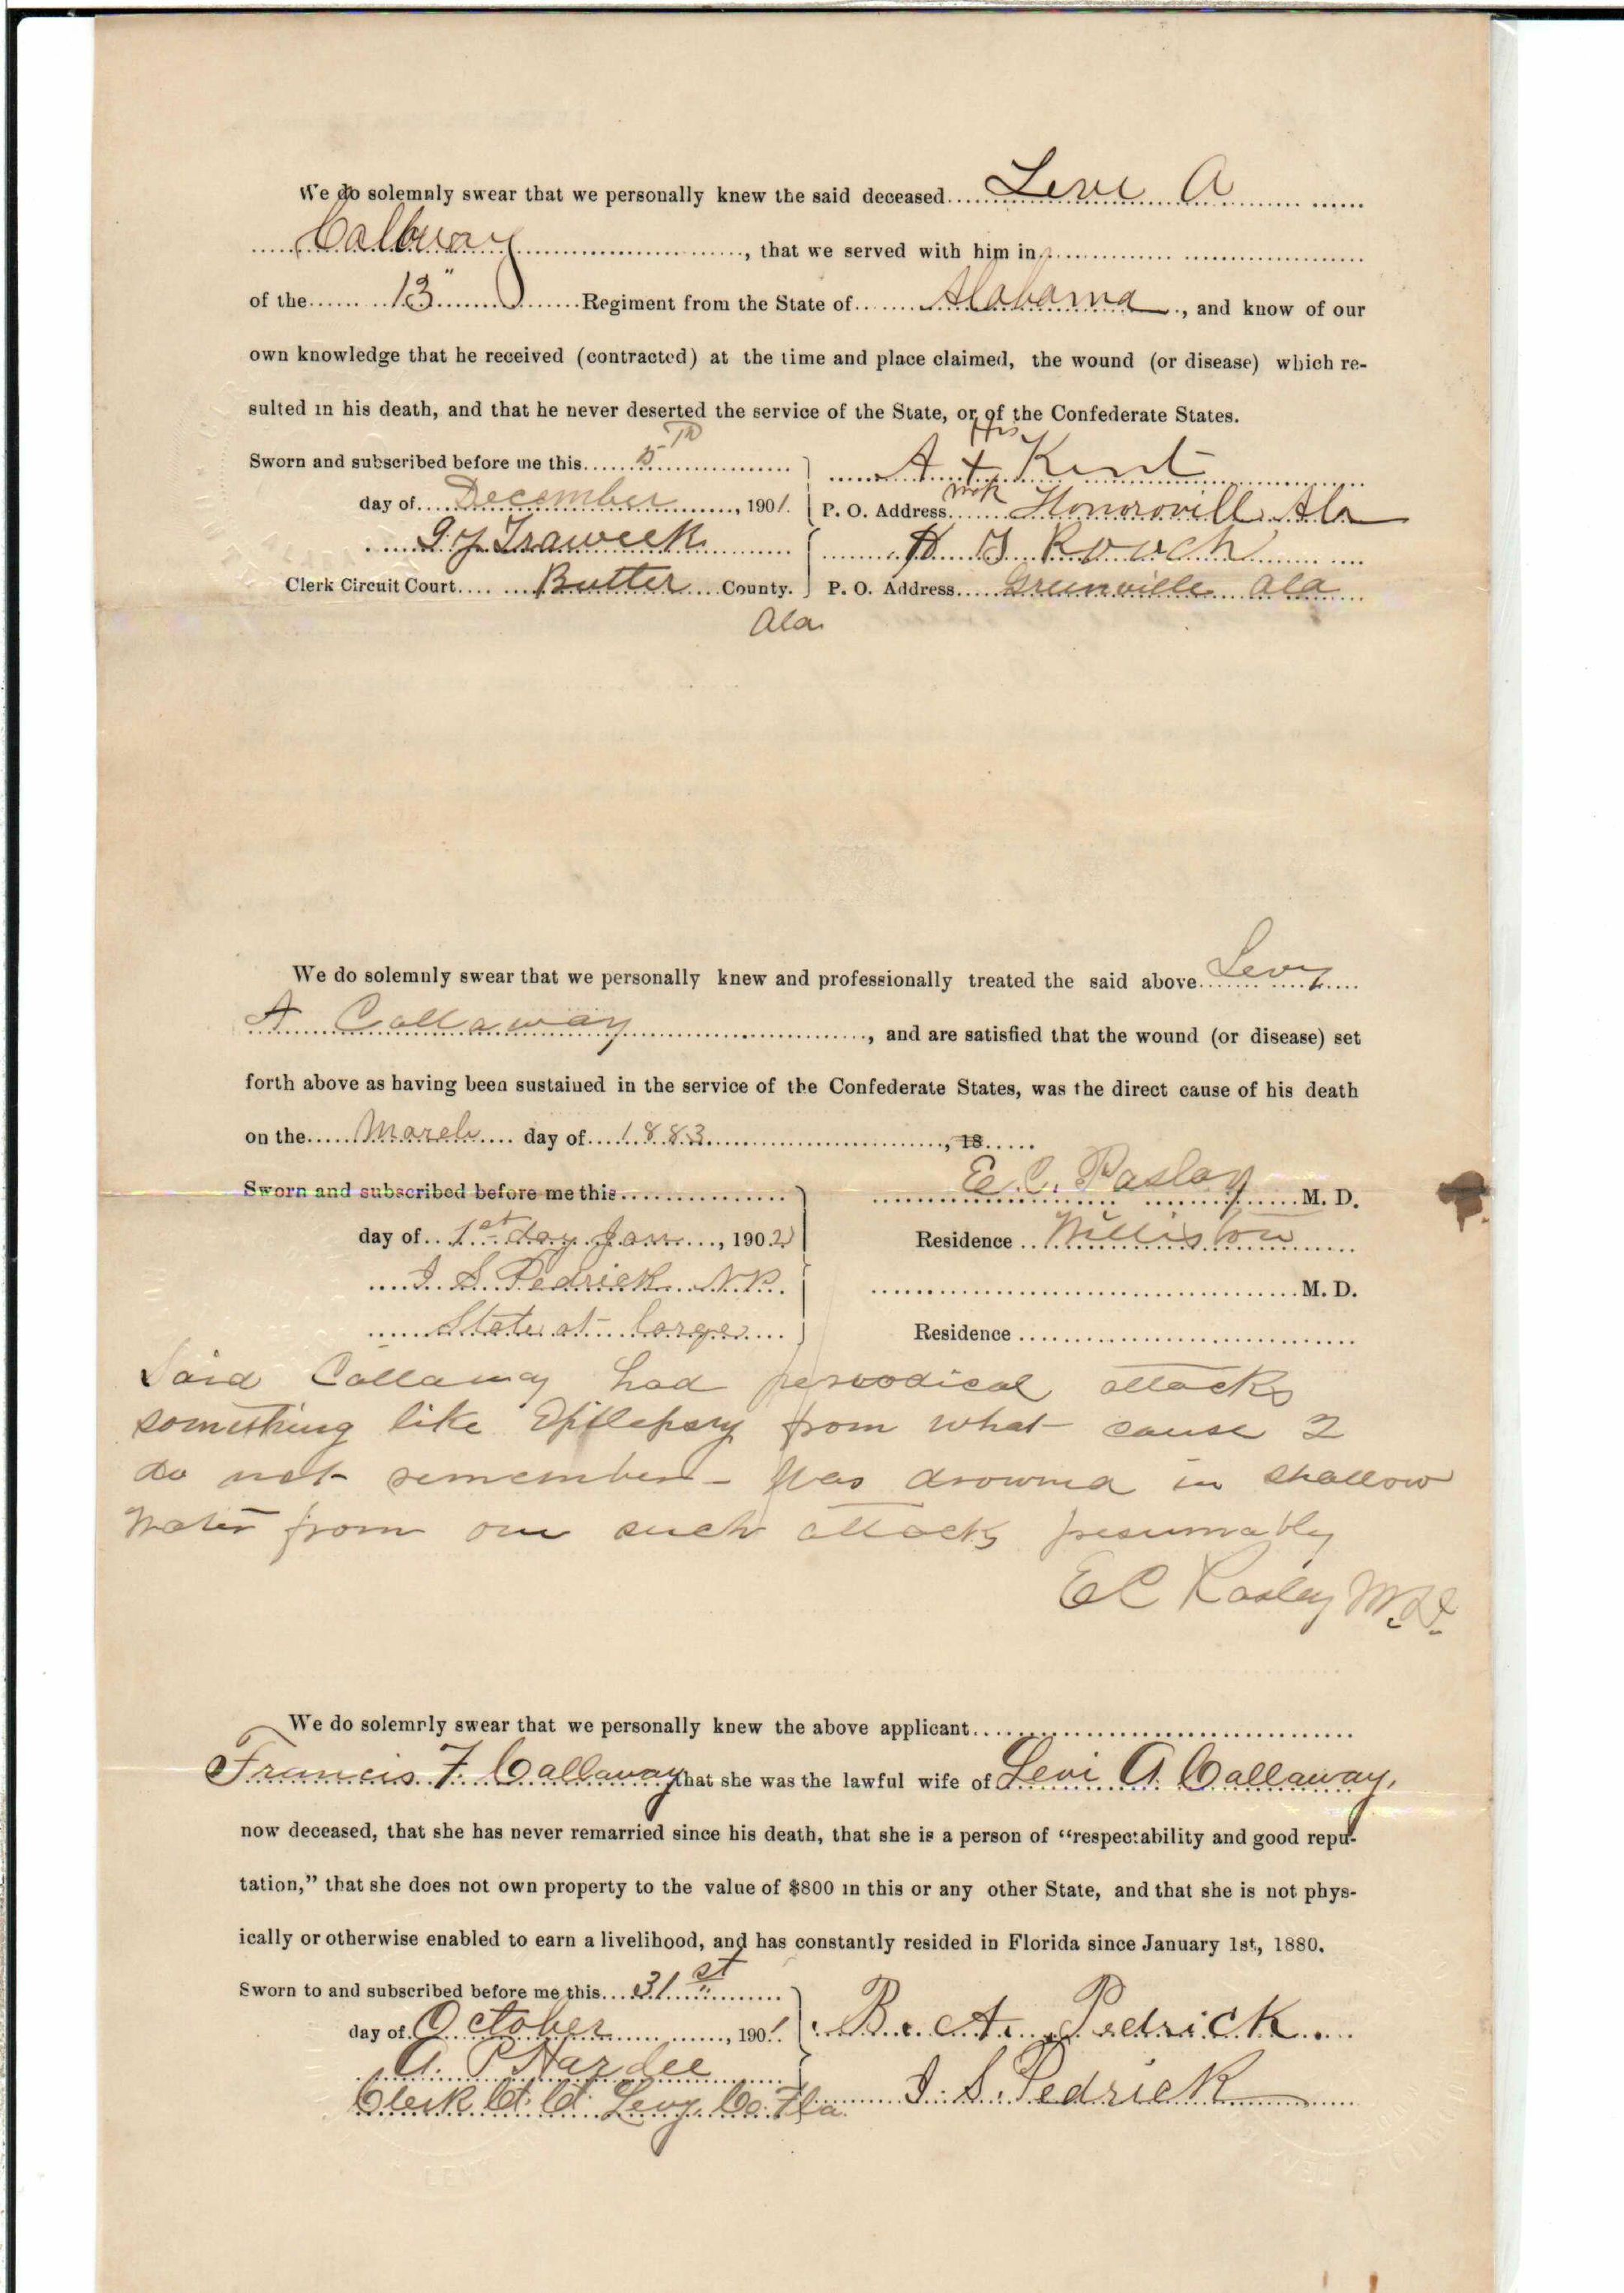 We do solemnly swear that we personally knew the said deceased Levi A
Callaway, that we served with him in
of the 13" Regiment from the State of Alabama, and know of our
own knowledge that he received (contracted) at the time and place claimed, the wound (or disease) which re-
sulted in his death, and that he never deserted the service of the State, or of the Confederate States.
Sworn and subscribed before me this 5th
day of December, 1901.
Traweek
Clerk Circuit Court Butler County.
Ala
A his + mrk Kent
P. O. Address Honoroville Ala
P. O. Address Greenville Ala
We do solemnly swear that we personally knew and professionally treated the said above Levy
A Callaway, and are satisfied that the wound (or disease) set
forth above as having been sustained in the service of the Confederate States, was the direct cause of his death
on the March day of 1883, 18
Sworn and subscribed before me this
day of 1st day Jan, 1902
J. S. Pedrick N.P.
State at large
E. C. Pasley M. D.
Residence Williston
M. D.
Residence
Said Callaway had periodical attacks
something like Epilepsy from what cause I
do not remember - Was drownd in shallow
water from one such attacks presumably
E C Pasley M.D.
We do solemnly swear that we personally knew the above applicant
Francis F. Callaway that she was the lawful wife of Levi A. Callaway,
now deceased, that she has never remarried since his death, that she is a person of “respectability and good repu-
tation,” that she does not own property to the value of $800 in this or any other State, and that she is not phys-
ically or otherwise enabled to earn a livelihood, and has constantly resided in Florida since January 1st, 1880.
Sworn to and subscribed before me this 31st
day of October, 1901.
A. P. Hardee
Clerk Ct. Ct. Levy Co. Fla.
B. A. Pedrick
J. S. Pedrick